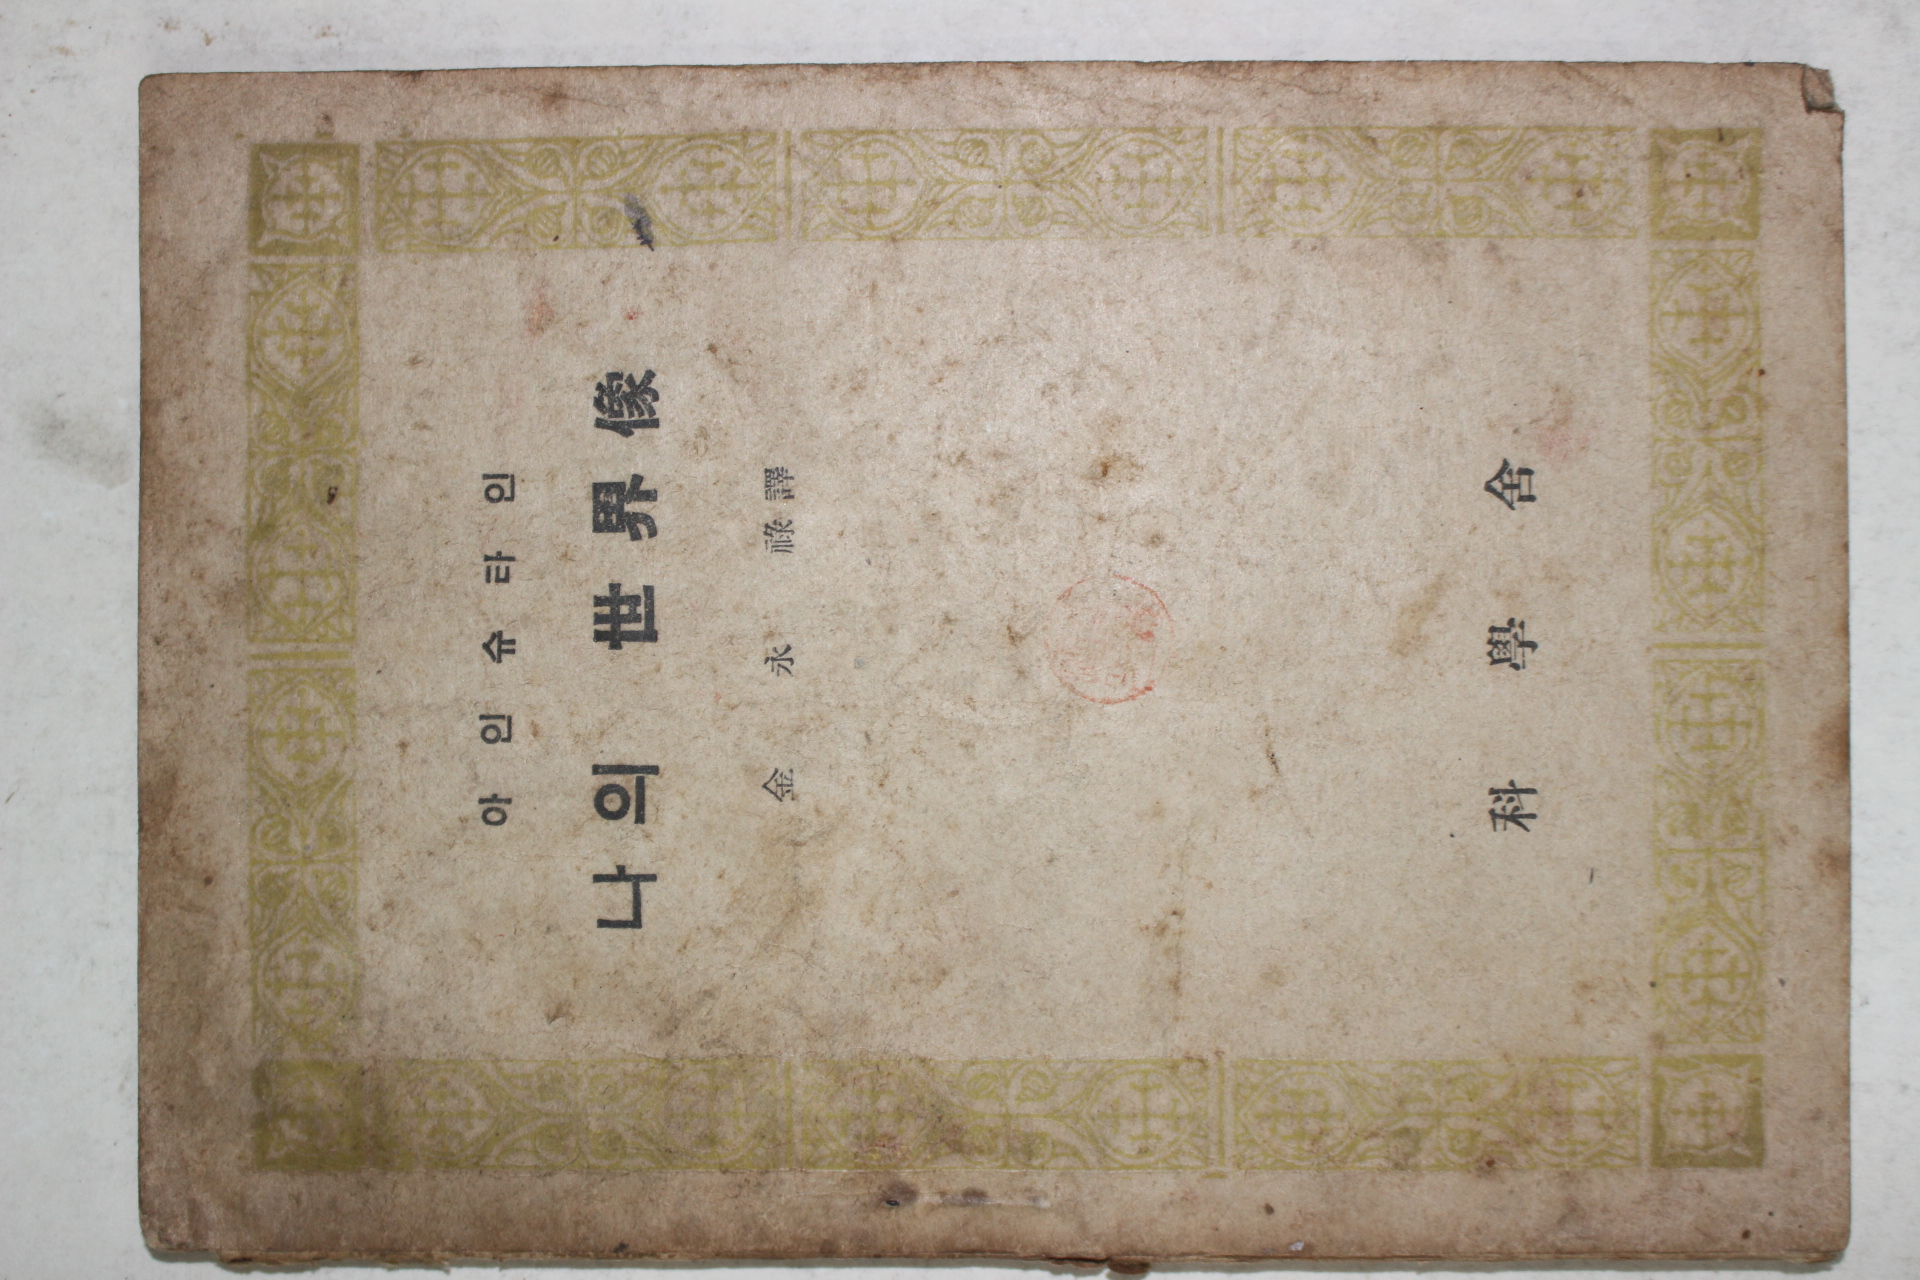 아인슈타인
나의 世界像
金永祿譯
科學舍